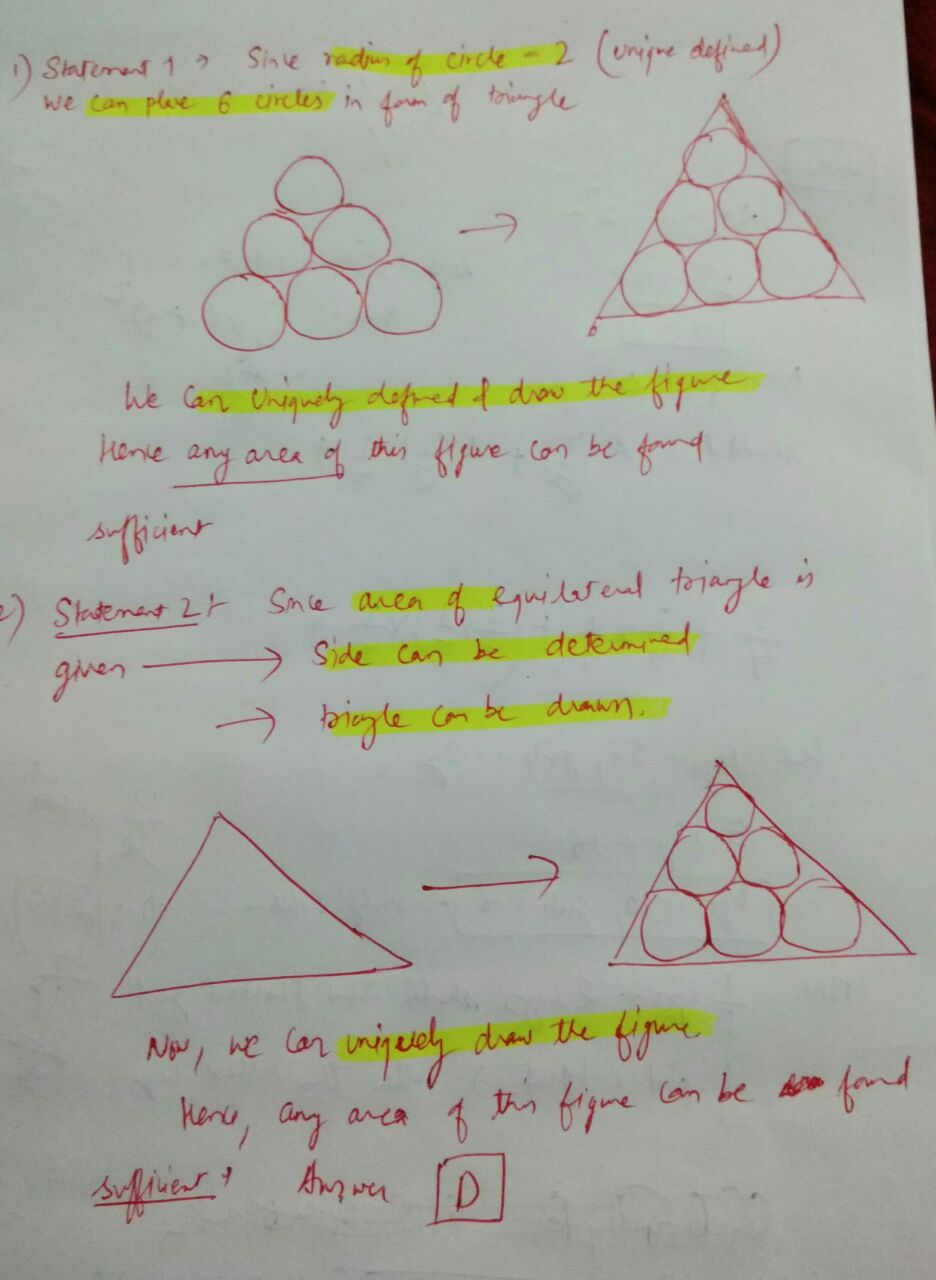 1) Statement 1 → Since radius of circle = 2 (unique defined)
we can place 6 circles in form of triangle
We can uniquely defined & draw the figure
Hence any area of this figure can be found
sufficient
2) Statement 2: Since area of equilateral triangle is
given → Side can be determined
→ triangle can be drawn.
Now, we can uniquely draw the figure
Hence, any area of this figure can be found
sufficient, Answer D